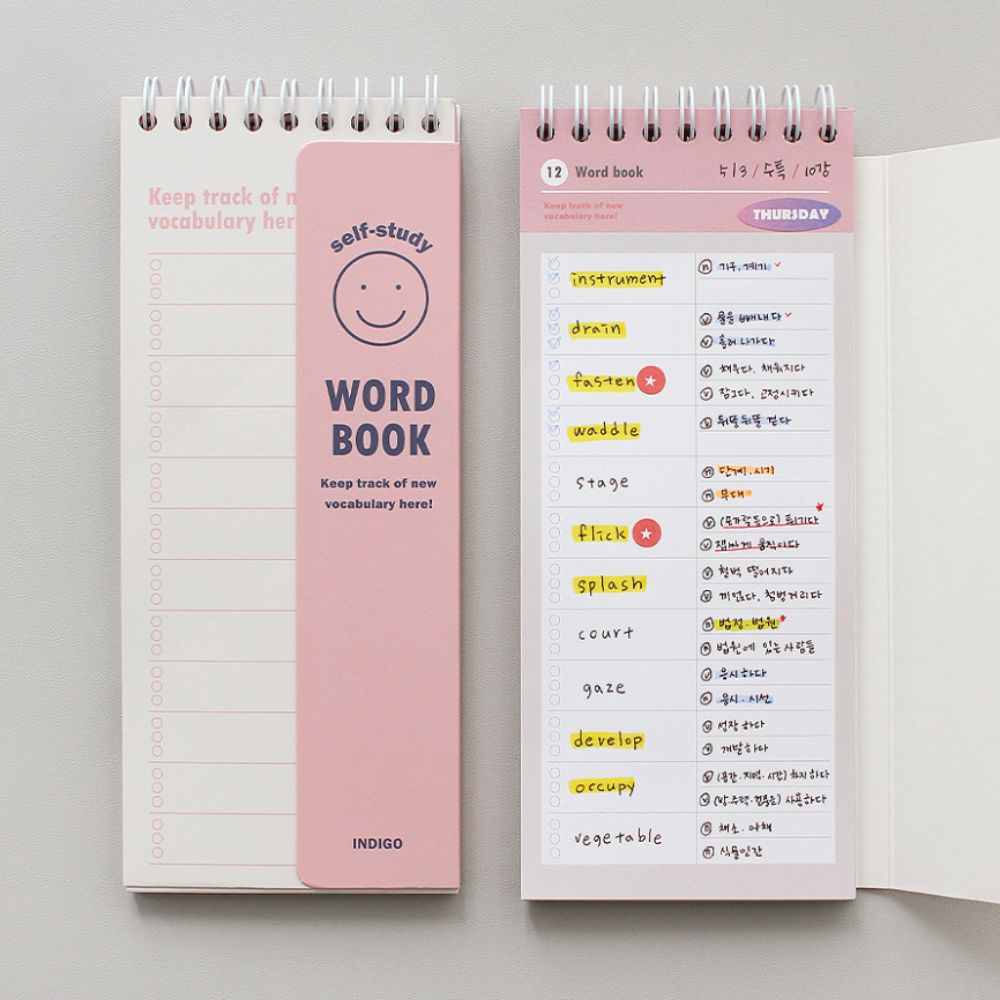 Keep track of n
vocabulary her
self-study
WORD
BOOK
Keep track of new
vocabulary here!
INDIGO
12 Word book 5/3 / 수특 / 10강
Keep track of new
vocabulary here!
THURSDAY
instrument
ⓝ 기구, 계기
drain
ⓥ 물을 빼내다
ⓥ 흘러 나가다
fasten
ⓥ 채우다, 채워지다
ⓥ 잠그다, 고정시키다
waddle
ⓥ 뒤뚱뒤뚱 걷다
stage
ⓝ 단계, 시기
ⓝ 무대
flick
ⓥ (손가락 등으로) 튀기다
ⓥ 잽싸게 움직이다
splash
ⓥ 첨벅 떨어지다
ⓥ 끼얹다, 첨벙거리다
court
ⓝ 법정·법원
ⓝ 법원에 있는 사람들
gaze
ⓥ 응시하다
ⓝ 응시·시선
develop
ⓥ 성장하다
ⓥ 개발하다
occupy
ⓥ (공간·지역·시간) 차지하다
ⓥ (방·주택·건물을) 사용하다
vegetable
ⓝ 채소·야채
ⓝ 식물인간